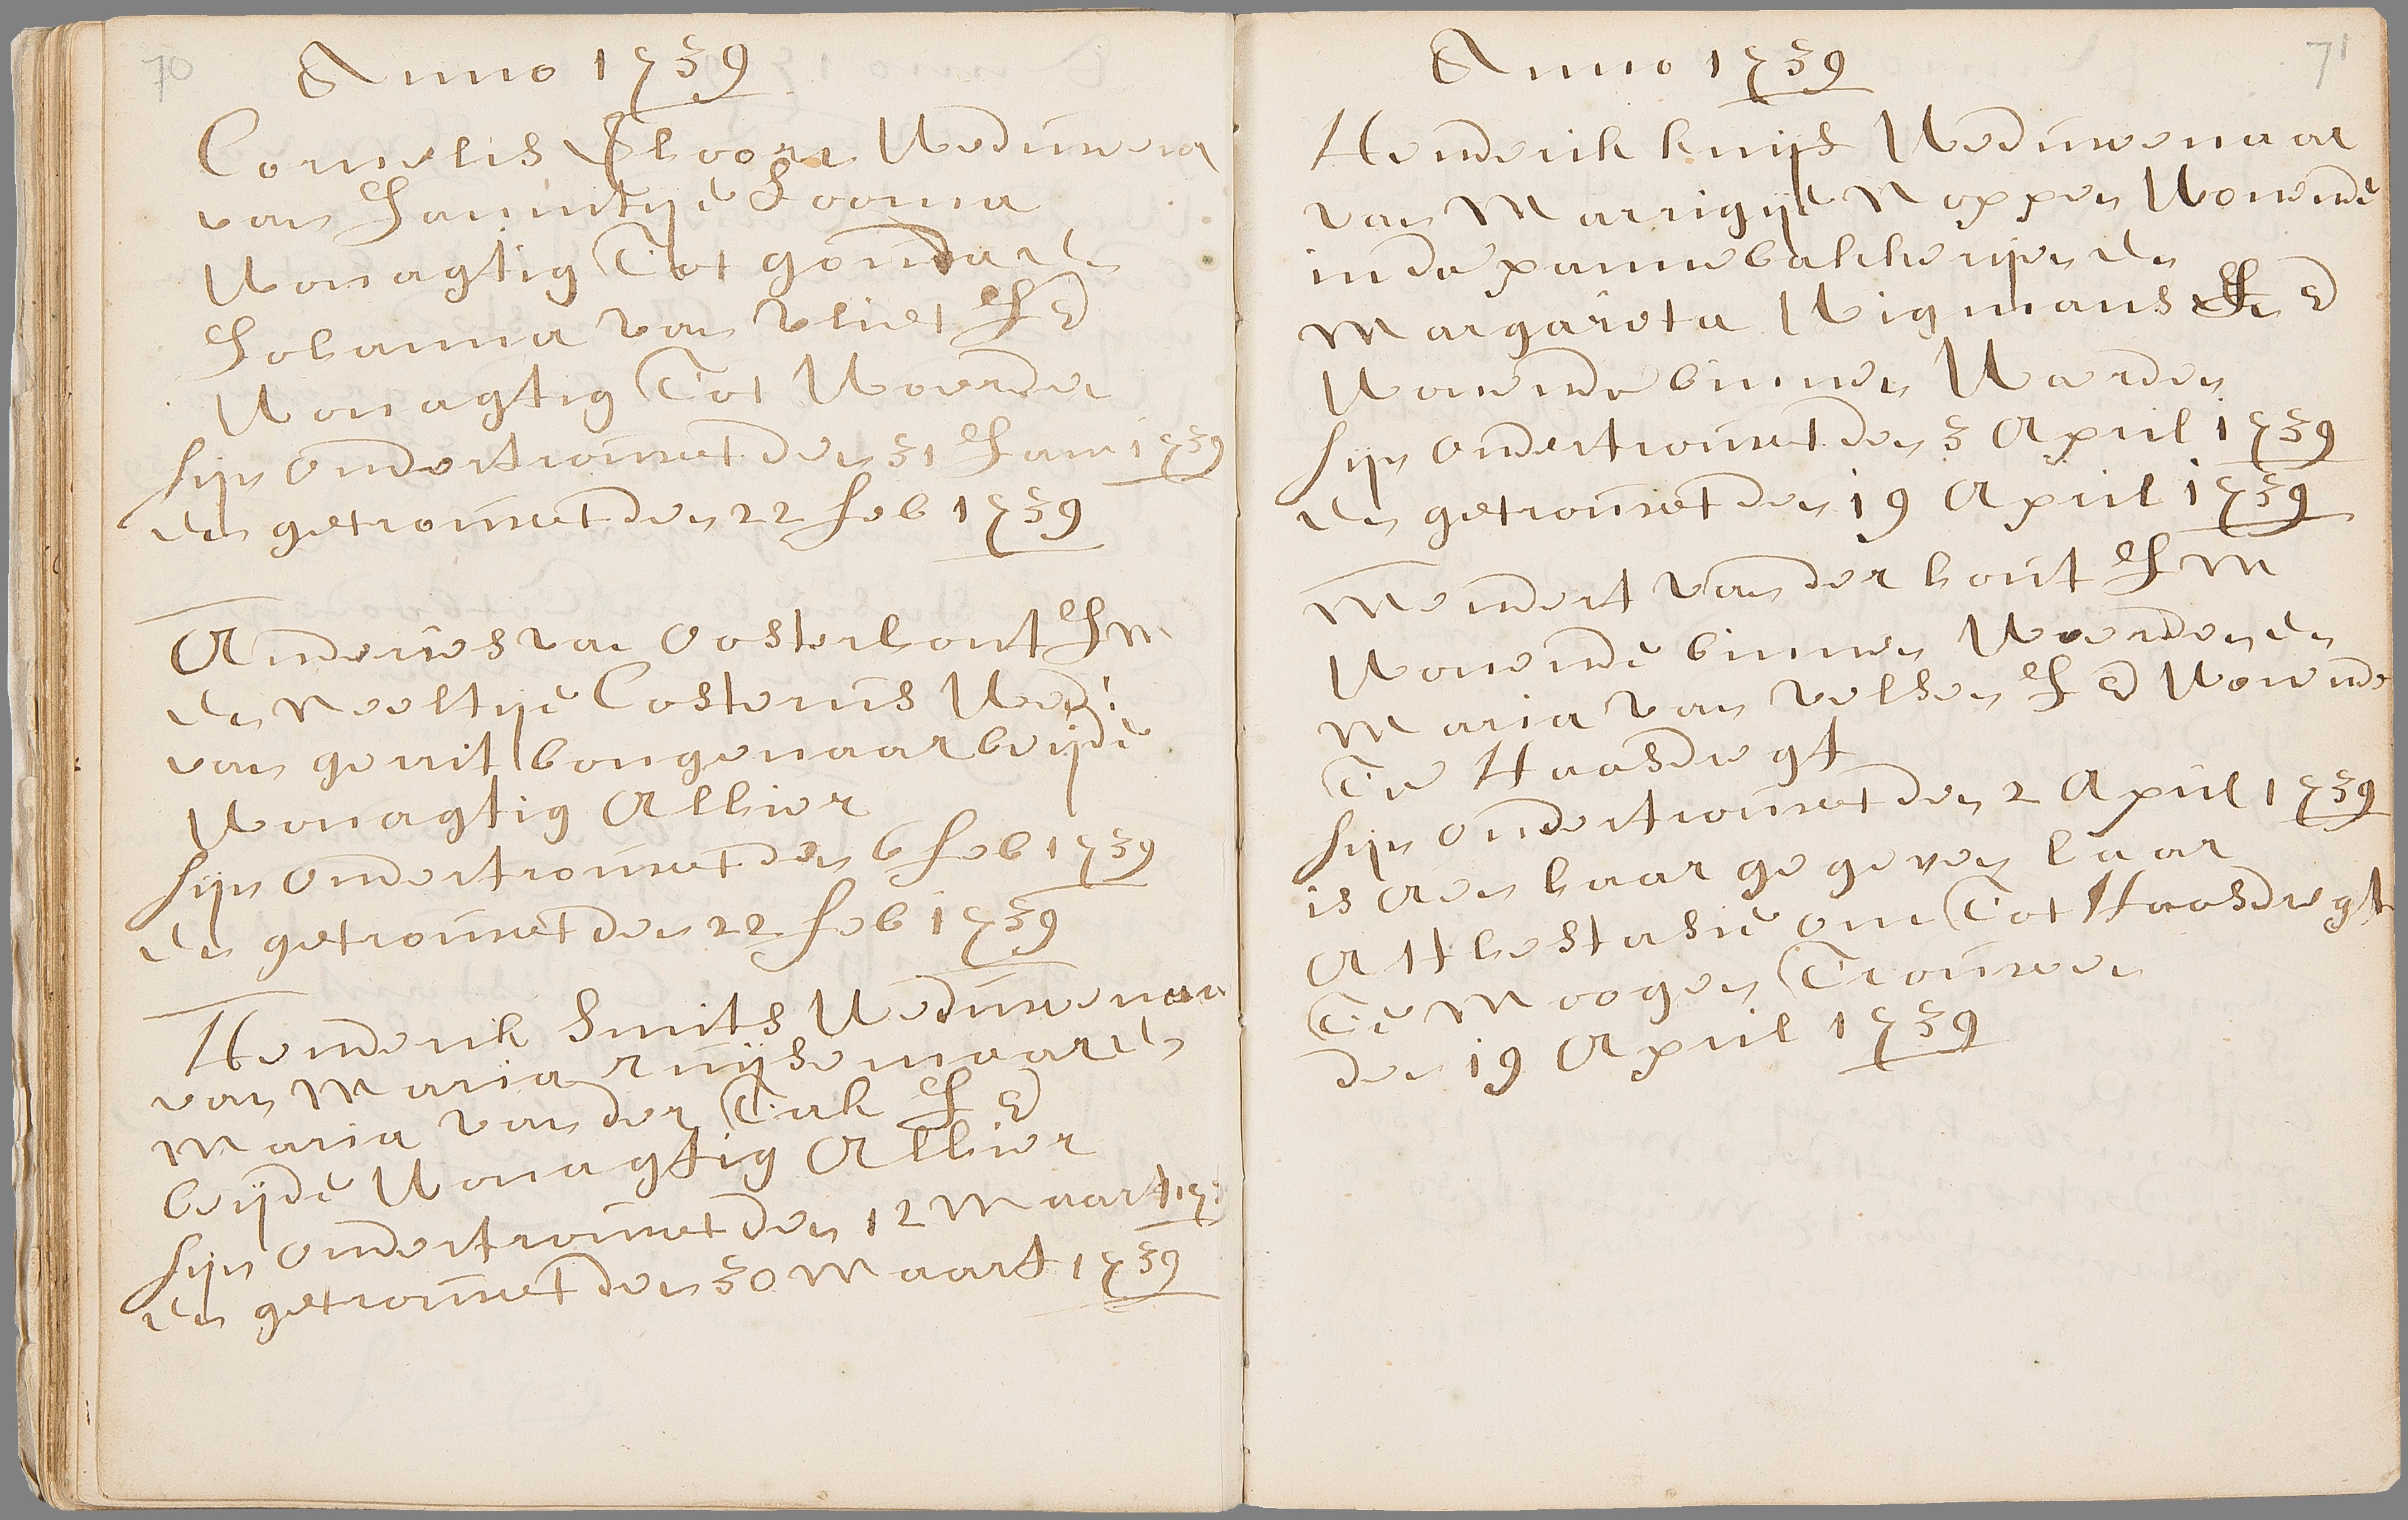 70
Anno 1739
Cornelis Vhoorn Weduwena
van Jannitye Loona
Wonagtig Tot gouda en
Johanna van vliet JD
Wonagtig Tot Woerden
sijn ondertrouwt den 31 Jani 1739
en getrouwt den 22 feb 1739
Anderies van Oosterhout JM
en Neeltije Costerus Wed:
van gerrit bongenaar beijde
Wonagtig Alhier
sijn ondertrouwt den 6 feb 1739
en getrouwt den 22 feb 1739
Henderik Smits Weduwenaar
van Maria ruijsenaar en
Maria van der Tak JD
beijde Wonagtig Alhier
sijn ondertrouwt den 12 Maart 173
en getrouwt den 30 Maart 1739
71
Anno 1739
Henderik kuijf Weduwenaar
van Marrigije Noppen Wonende
inde pannebakkerijen en
Margareta Wigmans JD
Wonende binnen Warden
sijn ondertrouwt den 3 April 1739
en getrouwt den 19 April 1739
Meindert van der hout JM
Wonende binnen Woerden en
Maria van velsen JD Wonende
Te Haasdregt
sijn ondertrouwt den 2 April 1739
is Aen haar gegeven haar
Atthestasie om Tot Haasdregt
Te Moogen Trouwen
den 19 April 1739